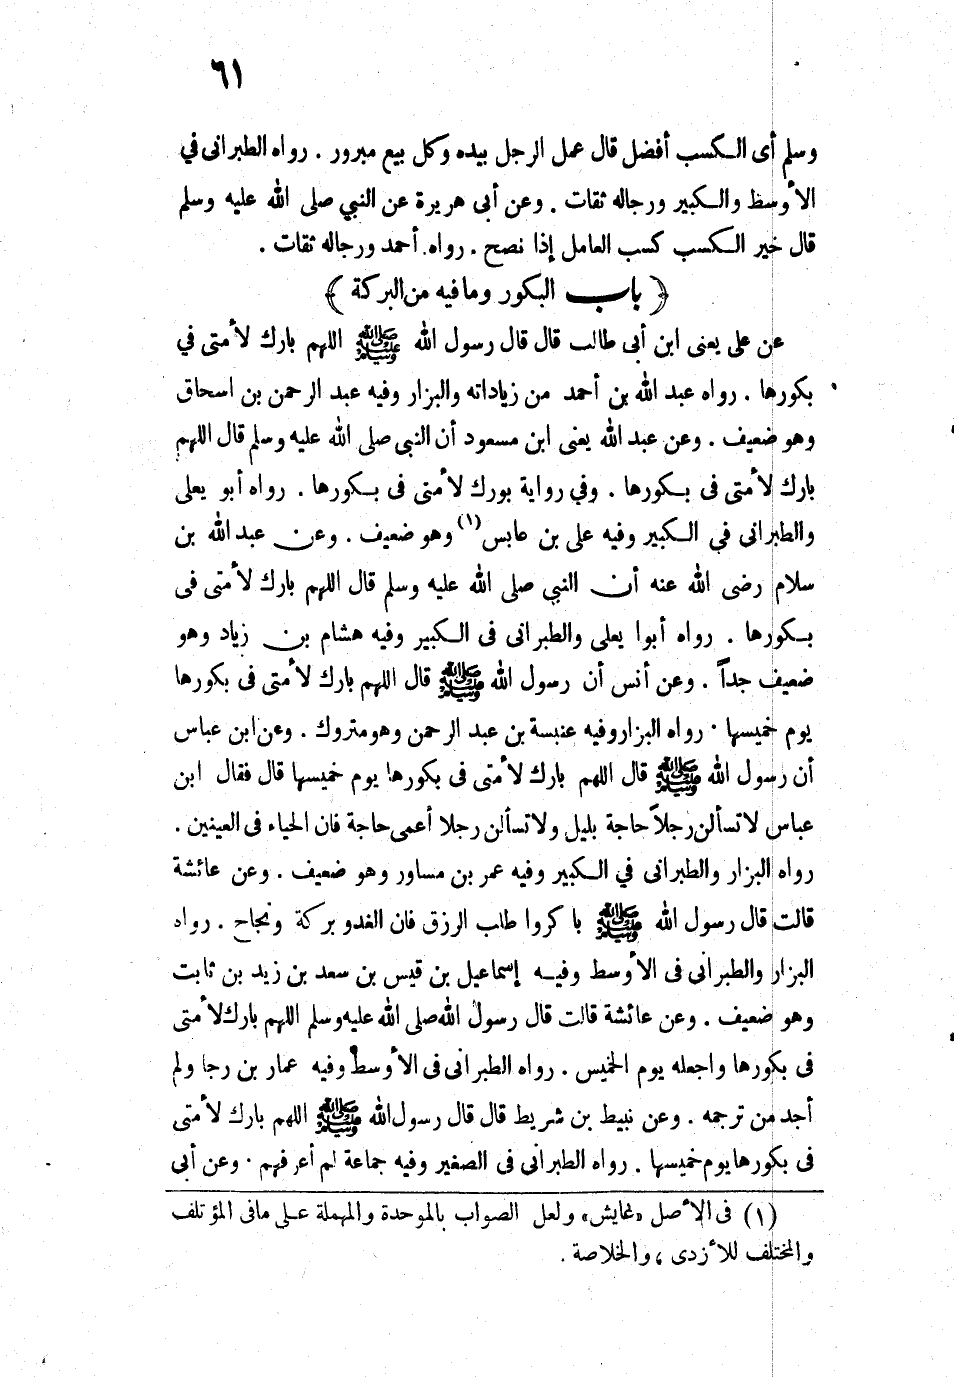 ٦١
وسلم أى الـكسب أفضل قال عمل الرجل بيده وكل بيع مبرور . رواه الطبرانى في
الأوسط والـكبير ورجاله ثقات . وعن أبى هريرة عن النبي صلى الله عليه وسلم
قال خير الـكسب كسب العامل إذا نصح . رواه أحمد ورجاله ثقات .
﴿ باب البكور وما فيه من البركة ﴾
عن على يعنى ابن أبى طالب قال قال رسول الله ﷺ اللهم بارك لأمتى في
بكورها . رواه عبد الله بن أحمد من زياداته والبزار وفيه عبد الرحمن بن اسحاق
وهو ضعيف . وعن عبد الله يعنى ابن مسعود أن النبى صلى الله عليه وسلم قال اللهم
بارك لأمتى فى بـكورها . وفي رواية بورك لأمتى فى بـكورها . رواه أبو يعلى
والطبرانى في الـكبير وفيه على بن عابس (١) وهو ضعيف . وعن عبد الله بن
سلام رضى الله عنه أن النبي صلى الله عليه وسلم قال اللهم بارك لأمتى فى
بـكورها . رواه أبوا يعلى والطبرانى فى الـكبير وفيه هشام بن زياد وهو
ضعيف جداً . وعن أنس أن رسول الله ﷺ قال اللهم بارك لأمتى فى بكورها
يوم خميسها . رواه البزار وفيه عنبسة بن عبد الرحمن وهو متروك . وعن ابن عباس
أن رسول الله ﷺ قال اللهم بارك لأمتى فى بكورها يوم خميسها قال فقال ابن
عباس لا تسألن رجلاً حاجة بليل ولا تسألن رجلا أعمى حاجة فان الحياء فى العينين .
رواه البزار والطبرانى في الـكبير وفيه عمر بن مساور وهو ضعيف . وعن عائشة
قالت قال رسول الله ﷺ باكروا طلب الرزق فان الغدو بركة ونجاح . رواه
البزار والطبرانى فى الأوسط وفيـه إسماعيل بن قيس بن سعد بن زيد بن ثابت
وهو ضعيف . وعن عائشة قالت قال رسول الله صلى الله عليه وسلم اللهم بارك لأمتى
فى بكورها واجعله يوم الخميس . رواه الطبرانى فى الأوسط وفيه عمار بن رجا ولم
أجد من ترجمه . وعن نبيط بن شريط قال قال رسول الله ﷺ اللهم بارك لأمتى
فى بكورها يوم خميسها . رواه الطبرانى فى الصغير وفيه جماعة لم أعرفهم . وعن أبى
(١) فى الأصل «غايش» ولعل الصواب بالموحدة والمهملة عـلى مافى المؤتلف
والمختلف للأزدى ، والخلاصة .